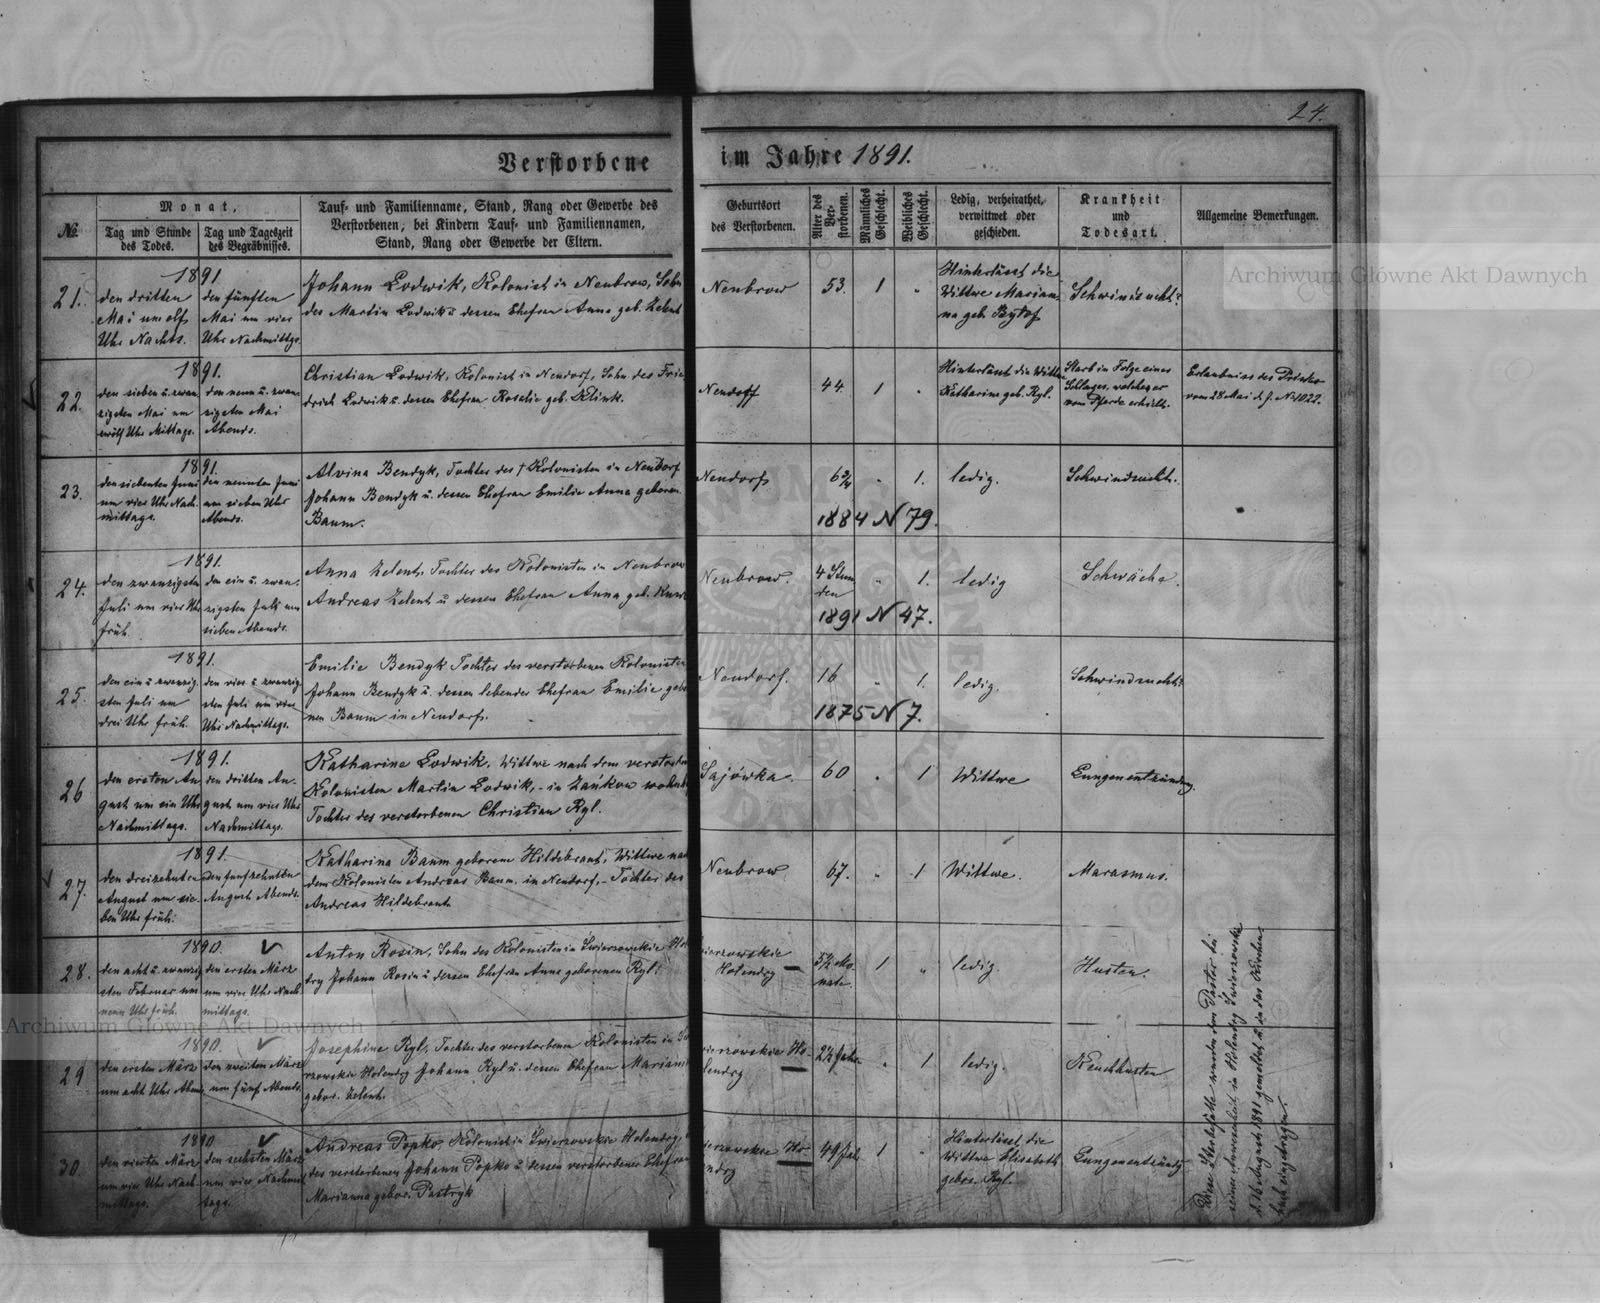 24.
Verstorbene im Jahre 1891.
№.
Monat,
Tag und Stunde des Todes.
Tag und Tageszeit des Begräbnisses.
Tauf- und Familienname, Stand, Rang oder Gewerbe des
Verstorbenen, bei Kindern Tauf- und Familiennamen,
Stand, Rang oder Gewerbe der Eltern.
Geburtsort
des Verstorbenen.
Alter des Verstorbenen.
Männliches Geschlecht.
Weibliches Geschlecht.
Ledig, verheirathet,
verwittwet oder
geschieden.
Krankheit
und
Todesart.
Allgemeine Bemerkungen.
Archiwum Główne Akt Dawnych
21.
1891.
den dritten
Mai um elf
Uhr Nachts.
den fünften
Mai um vier
Uhr Nachmittgs.
Johann Lodwik, Kolonist in Neubrow, Sohn
des Martin Lodwik u dessen Ehefrau Anna geb. Zelent
Neubrow
53.
1
"
Hinterlässt die
Wittwe Marian-
na geb.
Schwindsucht.
22.
1891.
den sieben u. zwan
zigsten Mai um
zwölf Uhr Mittags.
den neun u. zwan-
zigsten Mai
Abends.
Christian Lodwik, Kolonist in Neudorf, Sohn des Frie
drich Lodwik u. dessen Ehefrau Rosalie geb. Klink.
Neudorf
44.
1
"
Hinterlässt die Wittwe
Katharina geb. Ryl.
Starb in Folge eines
Schlages, welchen er
vom Pferde erhielt.
Erlaubniss des
vom 28 Mai d. J. № 1022.
23.
1891.
den siebenten Juni
um vier Uhr Nach-
mittags.
den neunten Juni
um sieben Uhr
Abends.
Alvina Bendyk, Tochter des † Kolonisten in Neudorf
Johann Bendyk u. dessen Ehefrau Emilie Anna geboren.
Baum.
Neudorf
6 3/4
"
1.
ledig.
Schwindsucht.
1884 N 79.
24.
1891.
den zwanzigsten
Juli um vier Uhr
früh.
den ein u. zwan-
zigsten Juli um
sieben Abends.
Anna Zelent, Tochter des Kolonisten in Neubrow
Andreas Zelent u dessen Ehefrau Anna geb.
Neubrow.
4 Stun
den
"
1.
ledig
Schwäche.
1891 N 47.
25.
1891.
den ein u zwanzig-
sten Juli um
drei Uhr früh.
den vier u zwanzig
sten Juli um vier
Uhr Nachmittags.
Emilie Bendyk Tochter des verstorbenen Kolonisten
Johann Bendyk u. dessen lebender Ehefrau Emilie gebo
nen Baum in Neudorf.
Neudorf.
16
"
1.
ledig.
Schwindsucht.
1875 N 7.
26
1891.
den ersten Au
gust um ein Uhr
Nachmittags.
den dritten Au-
gust um vier Uhr
Nachmittags.
Katharine Lodwik, Wittwe nach dem verstorbn
Kolonisten Martin Lodwik, - in Zańkow wohnh
Tochter des verstorbenen Christian Ryl.
Sajówka
60
"
1
Wittwe
Lungenentzündung.
27.
1891.
den dreizehnten
August um sie-
ben Uhr früh.
den funfzehnten
August Abends.
Katharina Baum geborene Hildebrant, Wittwe nach
dem Kolonisten Andreas Baum, in Neudorf, - Tochter des
Andreas Hildebrant
Neubrow
67.
"
1
Wittwe.
Marasmus.
28.
1890.
den acht u. zwanzig
sten Februar um
neun Uhr früh.
den ersten März
um vier Uhr Nach
mittags.
Anton Rosin, Sohn des Kolonisten in Świerzowskie Hol
dry Johann Rosin u dessen Ehefrau Anna geborenen Ryl.
ierzowskie
Holendry
5½ Mo-
nate.
1
"
ledig.
Husten.
Archiwum Główne Akt Dawnych
29
1890.
den ersten März
um acht Uhr Abens
den zweiten März
um fünf Abends.
Josephine Ryl, Tochter des verstorbenen Kolonisten in Św
rzowskie Holendry Johann Ryl u. dessen Ehefrau Mariann
gebor. Zelent.
ierzowskie Ho-
lendry
2½ Jahr
"
1
ledig.
Keuchhusten
30.
1890
den vierten März
um vier Uhr Nach-
mittags.
den sechsten März
um vier Nachmit
tags.
Andreas Popko, Kolonist in Świerzowskie Holendry,
des verstorbenen Johann Popko u dessen verstorbener Ehefrau
Marianna gebor. Pastryk
ierzowskie Ho-
lendry
49 Jah
1
"
Hinterlässt die
Wittwe Elisabeth
gebor. Ryl.
Lungenentzündg
Diese Sterbefälle wurden dem Pastor bei
seiner Anwesenheit in Holendry Świerzowskie
d. 16 August 1891 gemeldet u. in das Kirchen-
buch eingetragen.